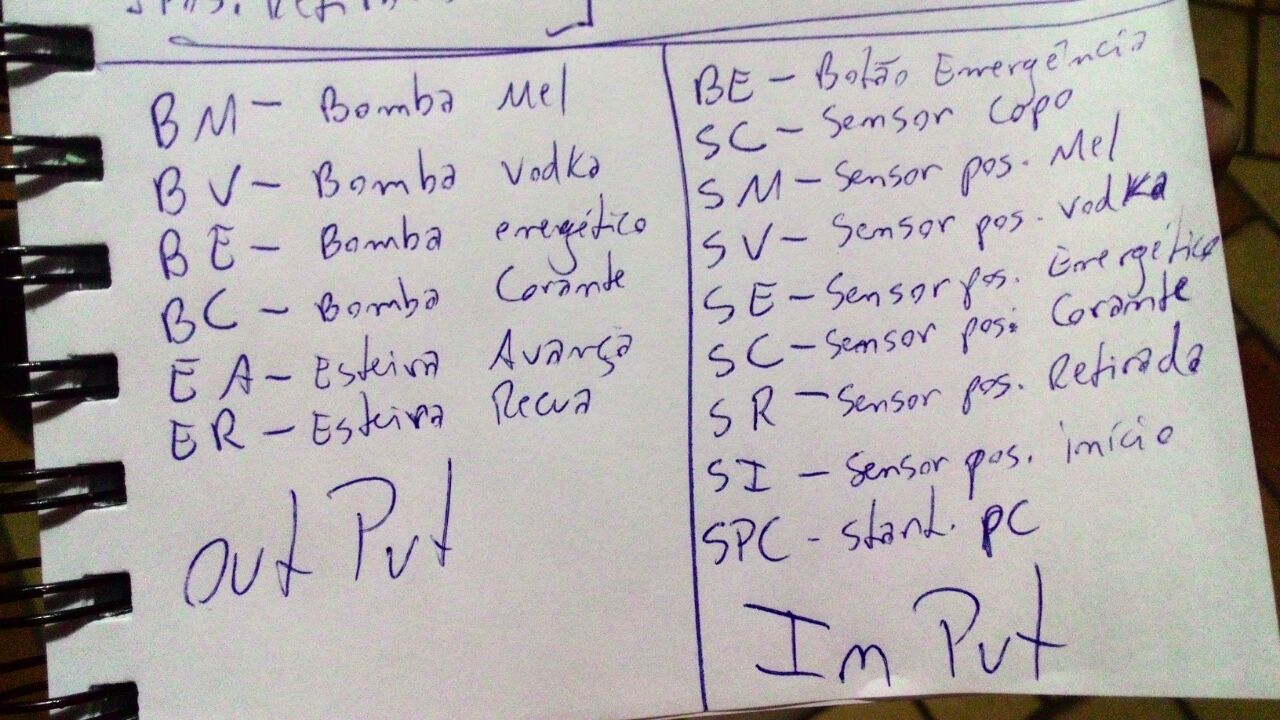 BM - Bomba Mel
BV - Bomba Vodka
BE - Bomba energético
BC - Bomba Corante
EA - Esteira Avança
ER - Esteira Recua
Out Put
BE - Botão Emergência
SC - Sensor Copo
SM - Sensor pos. Mel
SV - Sensor pos. vodka
SE - Sensor pos. Emergético
SC - Sensor pos. Corante
SR - Sensor pos. Retirada
SI - Sensor pos. início
SPC - Start. PC
In Put